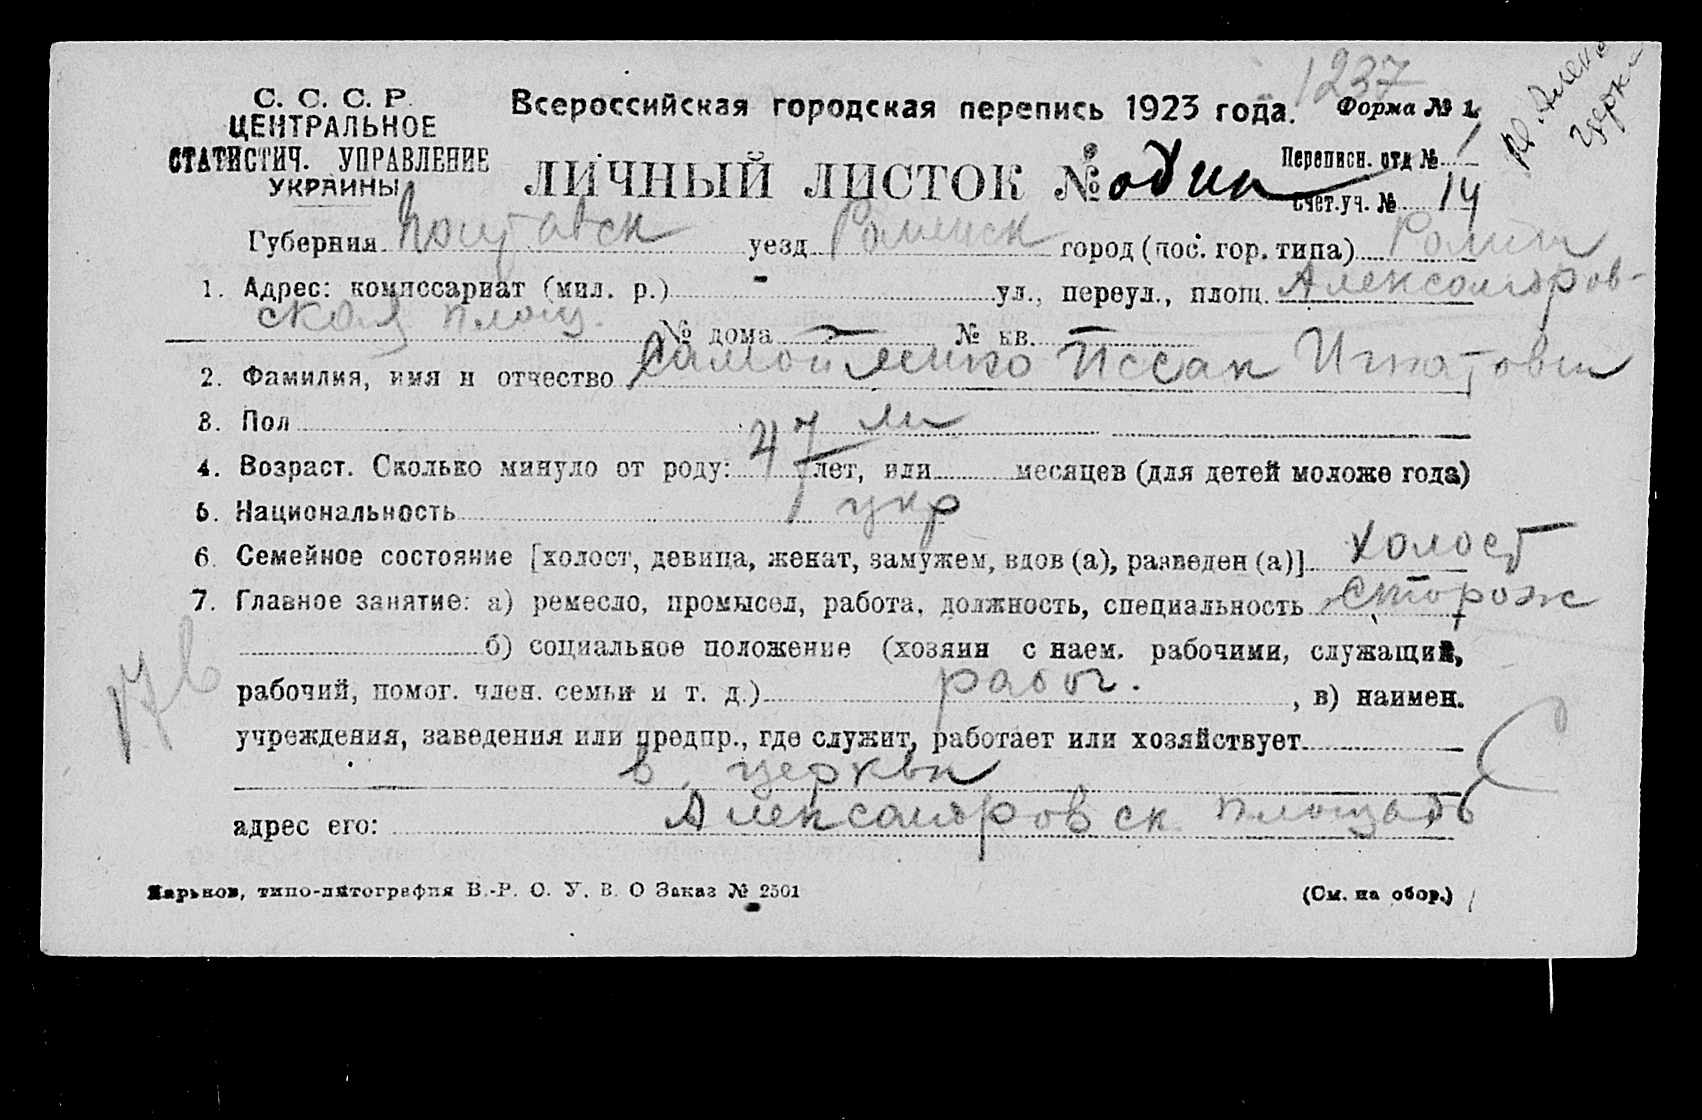 1237
С. С. С. Р.
ЦЕНТРАЛЬНОЕ
СТАТИСТИЧ. УПРАВЛЕНИЕ
УКРАИНЫ
Всероссийская городская перепись 1923 года. Форма № 1
церк
ЛИЧНЫЙ ЛИСТОК № один
Переписн. отд № 1
Счет.уч. № 14
Губерния Полтавск уезд Роменск город (пос. гор. типа) Ромны
1. Адрес: комиссариат (мил. р.) - ул., переул., площ. Александров-
ская площ. № дома — № кв. —
2. Фамилия, имя и отчество Самойленко Иссак Игнатович
3. Пол м
4. Возраст. Сколько минуло от роду: 47 лет, или месяцев (для детей моложе года)
5. Национальность укр
6. Семейное состояние [холост, девица, женат, замужем, вдов (а), разведен (а)] холост
7. Главное занятие: а) ремесло, промысел, работа, должность, специальность сторож
б) социальное положение (хозяин с наем. рабочими, служащий,
рабочий, помог. член. семьи и т. д.) рабоч. , в) наимен.
учреждения, заведения или предпр., где служит, работает или хозяйствует
в церкви
адрес его: Александровск площадь
Харьков, типо-литография В.-Р. О. У. В. О Заказ № 2501
(См. на обор.)